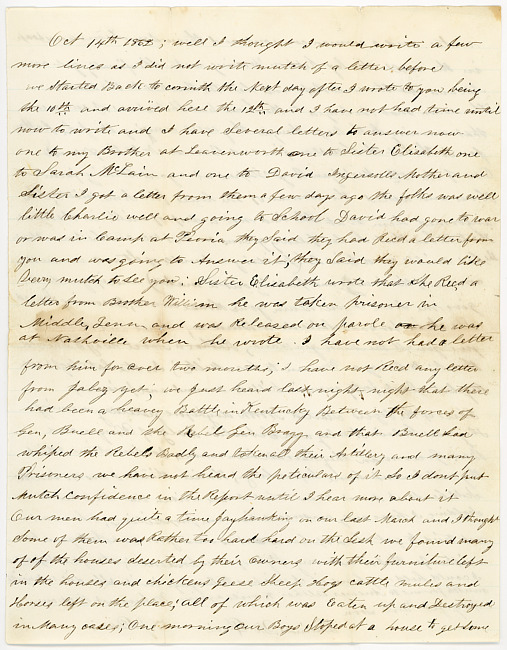 Oct 14th 1862; well I thought I would write a few
more lines as I did not write mutch of a letter before
we Started Back to corinth the Next day after I wrote to you being
the 10th and arived here the 12th and I have not had time until
now to write and I have Several letters to answer now
one to my Brother at Leavenworth one to Sister Elisabeth one
to Sarah McLain and one to David Ingersolls Mother and
Sister I got a letter from them a few days ago the folks was well
little Charlie well and going to School David had gone to war
or was in Camp at Peoria they Said they had Recd a letter from
you and was going to Answer it; they Said they would like
very mutch to See you; Sister Elisabeth wrote that She Recd a
letter from Brother William he was taken prisoner in
Middle, Tenn, and was Released on parole he was
at Nashville when he wrote. I have not had a letter
from him for over two months; I have not Recd any letter
from Jabez yet; we Just heard last night night that there
had been a heavey Battle in Kentucky Between the forces of
Gen, Buell and the Rebel Gen Bragg and that Buell had
whiped the Rebels Badly and their Artilery and many
Prisoners we have not heard the peticulars of it So I dont put
Mutch Confidence in the Report until I hear more about it
Our men had quite a time Jayhawking on our last March and I thought
Some of them was Rather too hard hard on the Sesh we found many
of of the houses deserted by their owners with their furniture left
in the houses and chickens Geese Sheep Hogs cattle mules and
Horses left on the place; all of which was Eaten up and Destroyed
in Many cases; One morning Our Boys Stoped at a house to get Some